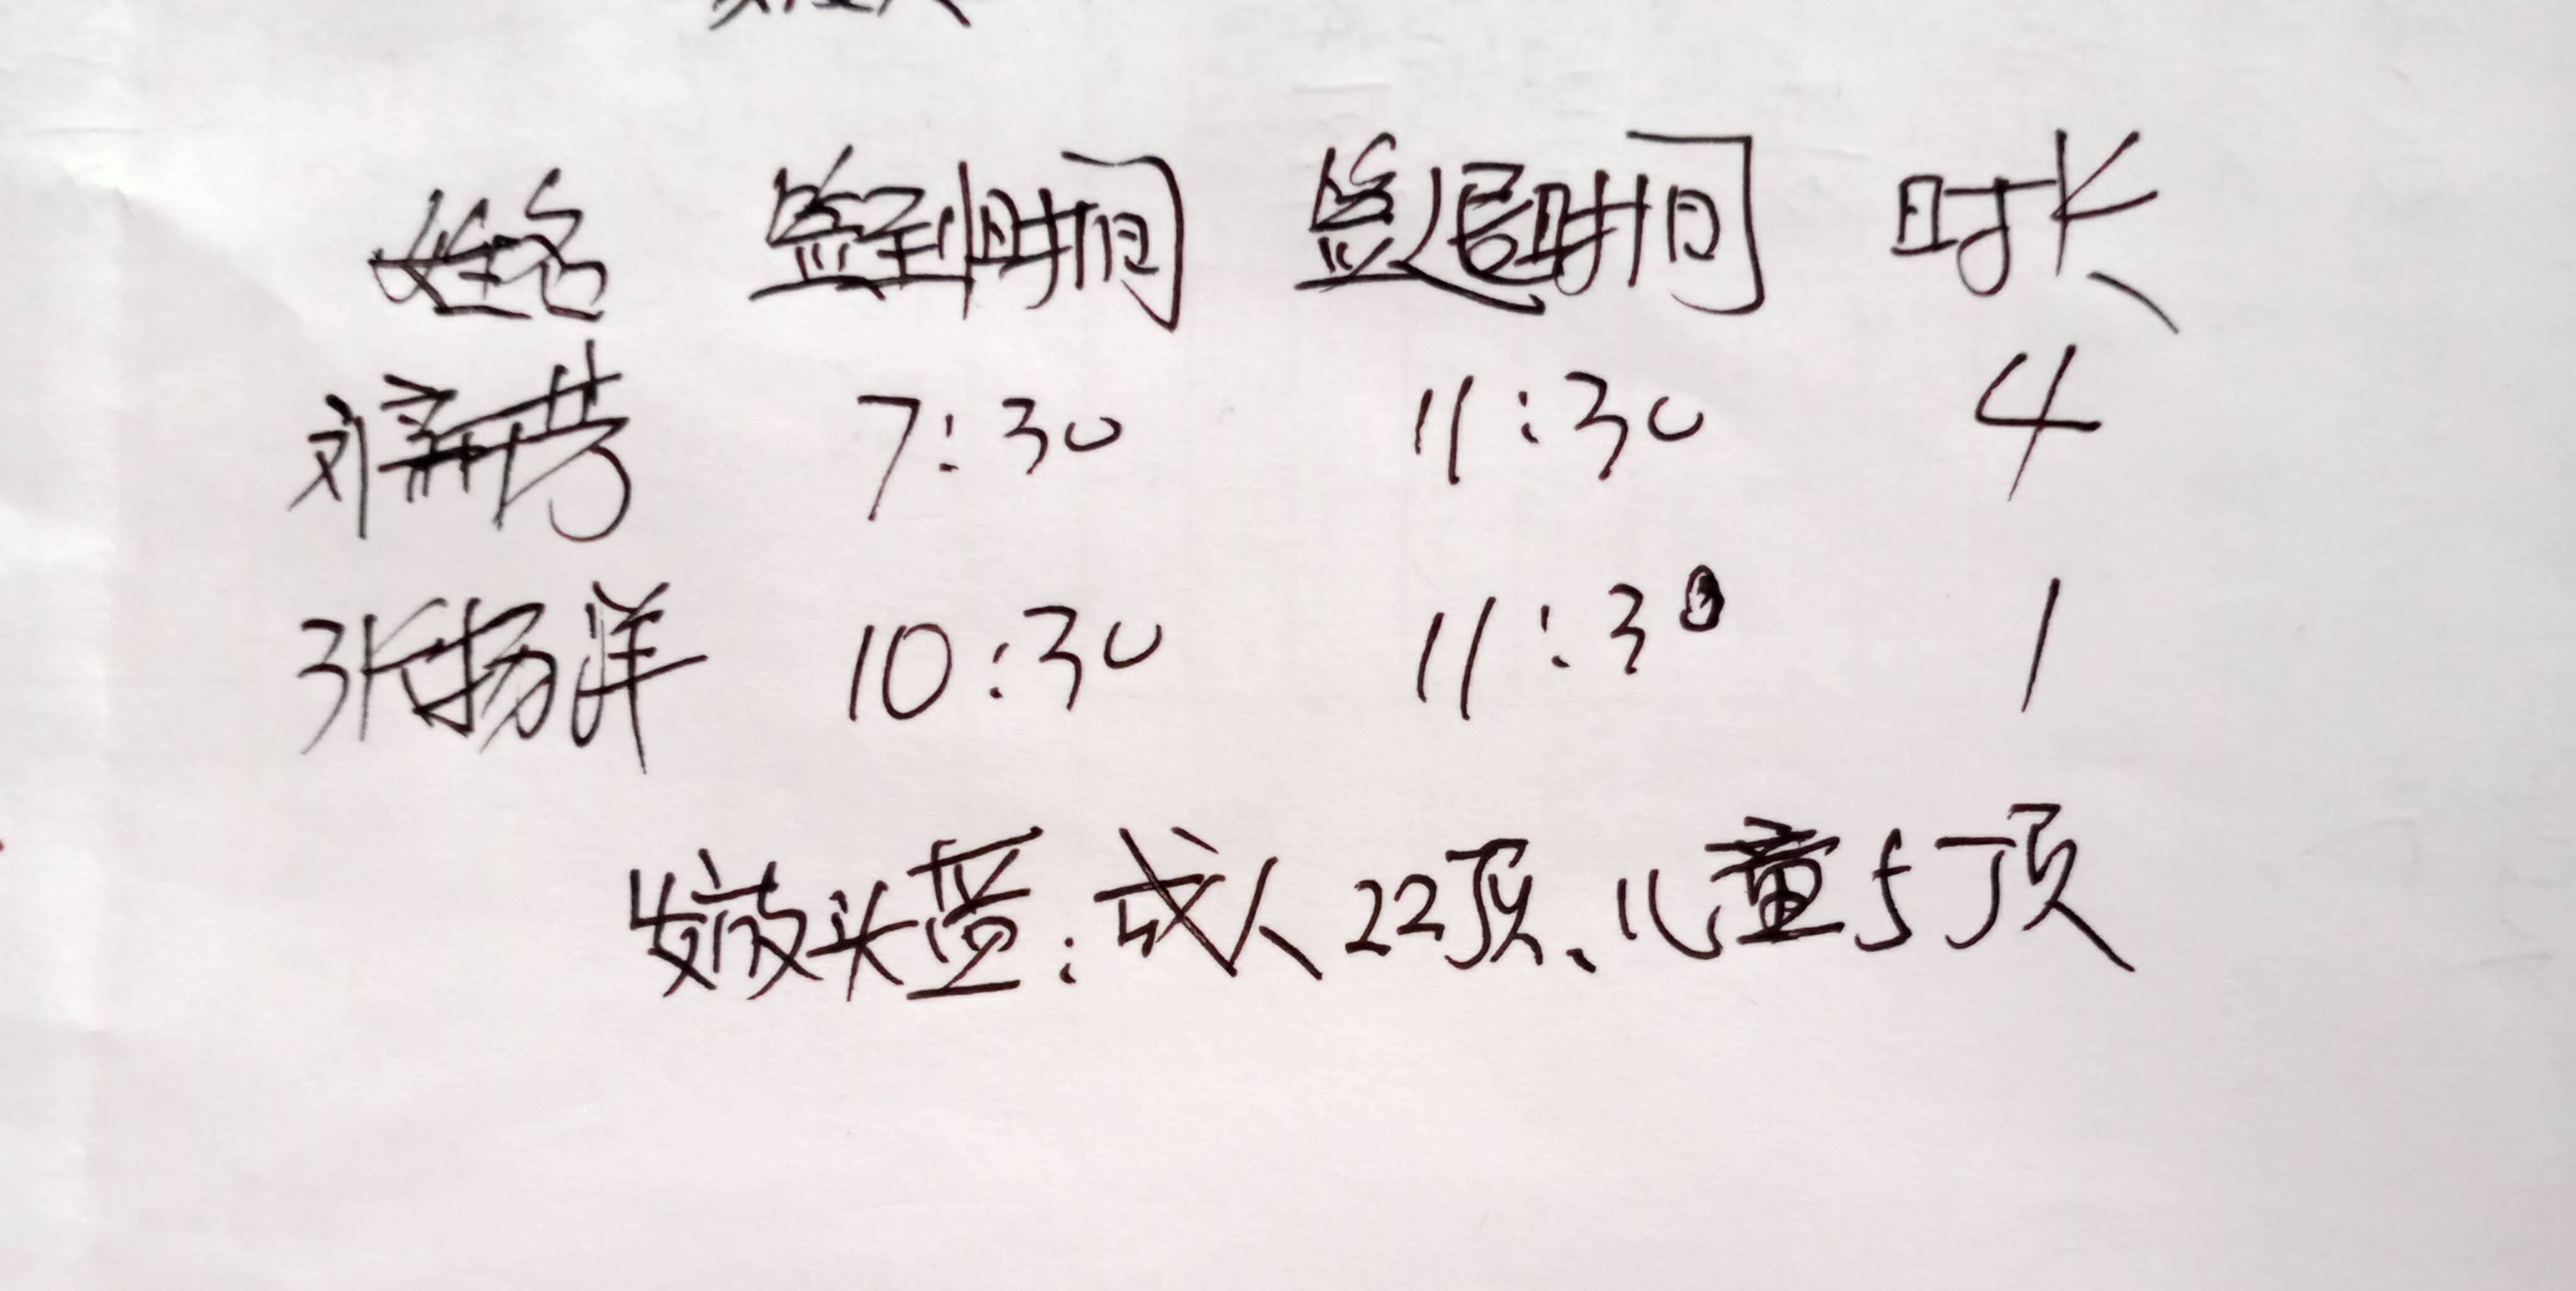 姓名 签到时间 签退时间 时长
刘春芳 7:30 11:30 4
张杨洋 10:30 11:30 1
发放头盔:成人22顶、儿童5顶